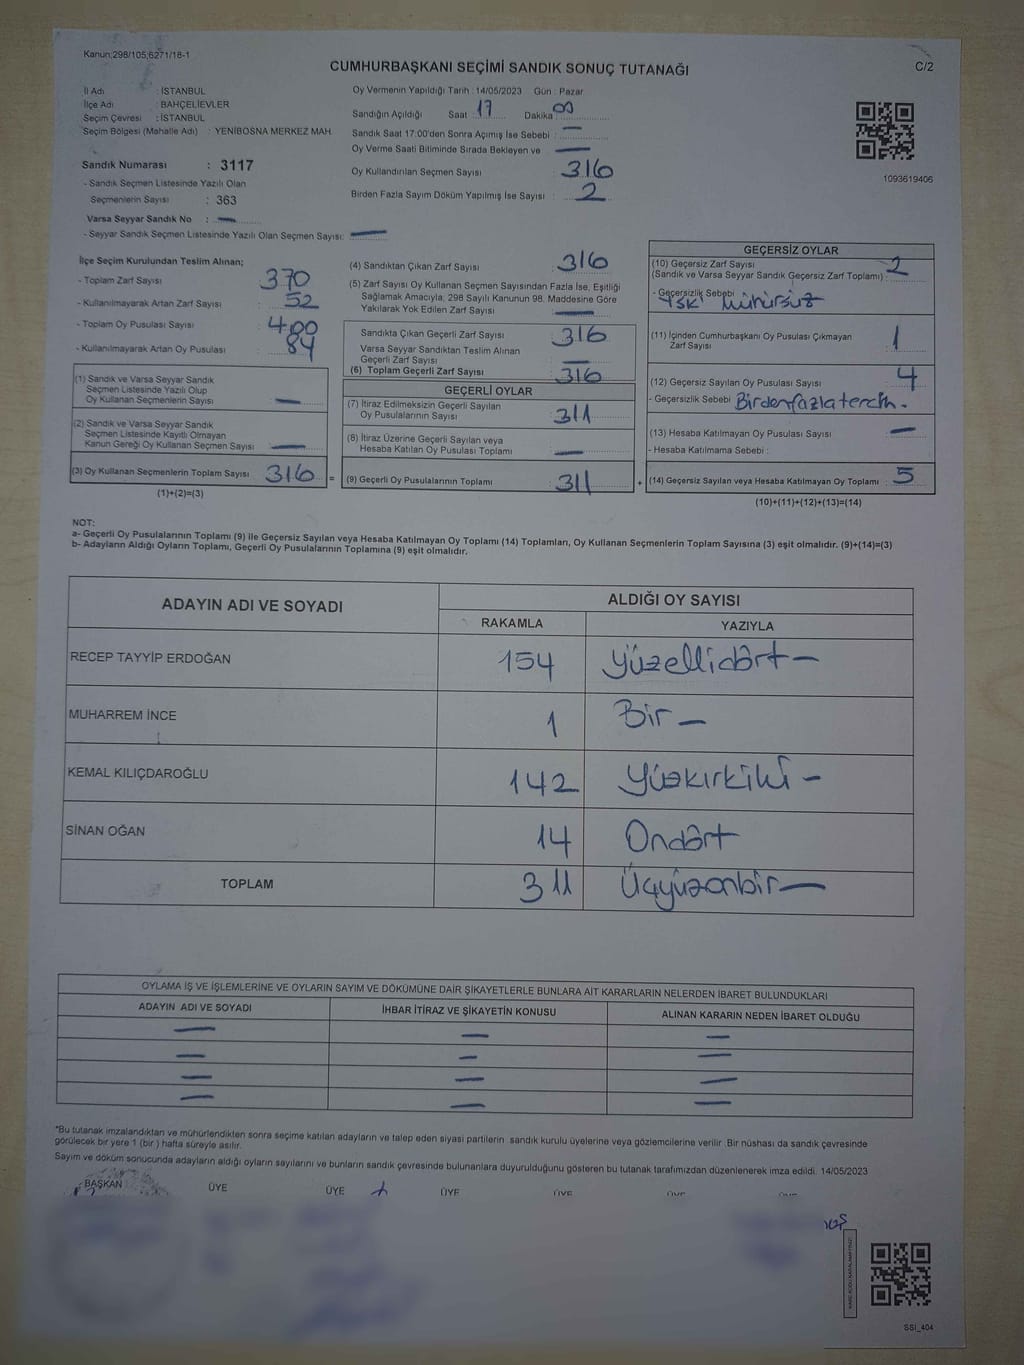 Kanun;298/105;6271/18-1
CUMHURBAŞKANI SEÇİMİ SANDIK SONUÇ TUTANAĞI
C/2
İl Adı : İSTANBUL
İlçe Adı : BAHÇELİEVLER
Seçim Çevresi : İSTANBUL
Seçim Bölgesi (Mahalle Adı) : YENİBOSNA MERKEZ MAH.
Sandık Numarası : 3117
- Sandık Seçmen Listesinde Yazılı Olan
Seçmenlerin Sayısı : 363
Varsa Seyyar Sandık No : —
- Seyyar Sandık Seçmen Listesinde Yazılı Olan Seçmen Sayısı: —
Oy Vermenin Yapıldığı Tarih : 14/05/2023 Gün : Pazar
Sandığın Açıldığı Saat : 17 Dakika : 00
Sandık Saat 17:00'den Sonra Açımış İse Sebebi : —
Oy Verme Saati Bitiminde Sırada Bekleyen ve —
Oy Kullandırılan Seçmen Sayısı : 316
Birden Fazla Sayım Döküm Yapılmış İse Sayısı : 2
1093619406
İlçe Seçim Kurulundan Teslim Alınan;
- Toplam Zarf Sayısı : 370
- Kullanılmayarak Artan Zarf Sayısı : 52
- Toplam Oy Pusulası Sayısı : 400
- Kullanılmayarak Artan Oy Pusulası : 84
(1) Sandık ve Varsa Seyyar Sandık
Seçmen Listesinde Yazılı Olup
Oy Kullanan Seçmenlerin Sayısı : —
(2) Sandık ve Varsa Seyyar Sandık
Seçmen Listesinde Kayıtlı Olmayan
Kanun Gereği Oy Kullanan Seçmen Sayısı : —
(3) Oy Kullanan Seçmenlerin Toplam Sayısı : 316 =
(1)+(2)=(3)
(4) Sandıktan Çıkan Zarf Sayısı : 316
(5) Zarf Sayısı Oy Kullanan Seçmen Sayısından Fazla İse, Eşitliği
Sağlamak Amacıyla; 298 Sayılı Kanunun 98. Maddesine Göre
Yakılarak Yok Edilen Zarf Sayısı : —
Sandıkta Çıkan Geçerli Zarf Sayısı : 316
Varsa Seyyar Sandıktan Teslim Alınan
Geçerli Zarf Sayısı : —
(6) Toplam Geçerli Zarf Sayısı : 316
GEÇERLİ OYLAR
(7) İtiraz Edilmeksizin Geçerli Sayılan
Oy Pusulalarının Sayısı : 311
(8) İtiraz Üzerine Geçerli Sayılan veya
Hesaba Katılan Oy Pusulası Toplamı : —
(9) Geçerli Oy Pusulalarının Toplamı : 311 +
GEÇERSİZ OYLAR
(10) Geçersiz Zarf Sayısı
(Sandık ve Varsa Seyyar Sandık Geçersiz Zarf Toplamı) : 2
- Geçersizlik Sebebi :
YSK Mühürsüz
(11) İçinden Cumhurbaşkanı Oy Pusulası Çıkmayan
Zarf Sayısı : 1
(12) Geçersiz Sayılan Oy Pusulası Sayısı : 4
- Geçersizlik Sebebi : Birden fazla tercih.
(13) Hesaba Katılmayan Oy Pusulası Sayısı : —
- Hesaba Katılmama Sebebi :
(14) Geçersiz Sayılan veya Hesaba Katılmayan Oy Toplamı : 5
(10)+(11)+(12)+(13)=(14)
NOT:
a- Geçerli Oy Pusulalarının Toplamı (9) ile Geçersiz Sayılan veya Hesaba Katılmayan Oy Toplamı (14) Toplamları, Oy Kullanan Seçmenlerin Toplam Sayısına (3) eşit olmalıdır. (9)+(14)=(3)
b- Adayların Aldığı Oyların Toplamı, Geçerli Oy Pusulalarının Toplamına (9) eşit olmalıdır.
ADAYIN ADI VE SOYADI
ALDIĞI OY SAYISI
RAKAMLA YAZIYLA
RECEP TAYYİP ERDOĞAN 154 Yüzellidört —
MUHARREM İNCE 1 Bir —
KEMAL KILIÇDAROĞLU 142 Yüzkırkiki —
SİNAN OĞAN 14 Ondört
TOPLAM 311 Üçyüzonbir —
OYLAMA İŞ VE İŞLEMLERİNE VE OYLARIN SAYIM VE DÖKÜMÜNE DAİR ŞİKAYETLERLE BUNLARA AİT KARARLARIN NELERDEN İBARET BULUNDUKLARI
ADAYIN ADI VE SOYADI İHBAR İTİRAZ VE ŞİKAYETİN KONUSU ALINAN KARARIN NEDEN İBARET OLDUĞU
— — —
— — —
— — —
— — —
*Bu tutanak imzalandıktan ve mühürlendikten sonra seçime katılan adayların ve talep eden siyasi partilerin sandık kurulu üyelerine veya gözlemcilerine verilir .Bir nüshası da sandık çevresinde
görülecek bir yere 1 (bir) hafta süreyle asılır.
Sayım ve döküm sonucunda adayların aldığı oyların sayılarını ve bunların sandık çevresinde bulunanlara duyurulduğunu gösteren bu tutanak tarafımızdan düzenlenerek imza edildi. 14/05/2023
BAŞKAN ÜYE ÜYE ÜYE ÜYE ÜYE ÜYE
KARE KODU KARALAMAYINIZ!
SSI_404